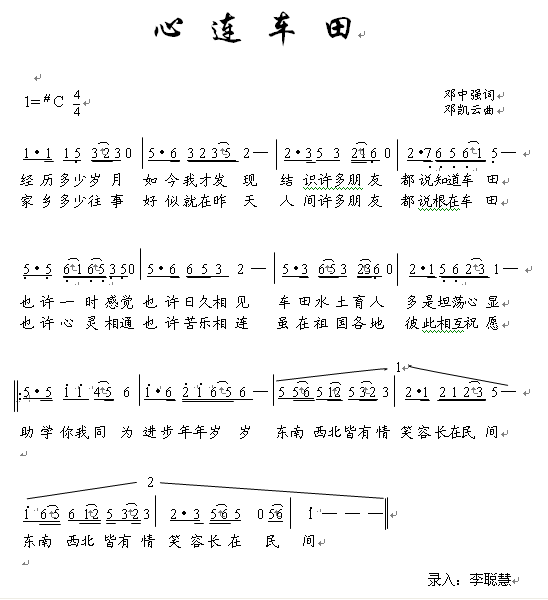 心 连 车 田
1=#C 4/4
邓中强词
邓凯云曲
1·1 15 3230 | 5·6 3235 2— | 2·35 3 2160 | 2·76561 5—
经历多少岁 月 如今我才发 现 结 识许多朋 友 都说知道车 田
家乡多少往 事 好似就在昨 天 人 间许多朋 友 都说根在车 田
5·5 616535 0 | 5·6 653 2— | 5·3 653 2360 | 2·156231—
也许一时感觉 也许日久相见 车田水土育人 多是坦荡心显
也许心灵相通 也许苦乐相连 虽在祖国各地 彼此相互祝愿
1
5·5 i i 45 6 | i·6 2i65 6— | 5 56 512 532 3 | 2·1 2123 5—
助学你我同 为 进步年年岁 岁 东南 西北皆有情 笑容长在民 间
2
i 65 612 5323 | 2·3 565 0 56 | i — — —
东南 西北 皆有 情 笑 容长在 民 间
录入：李聪慧